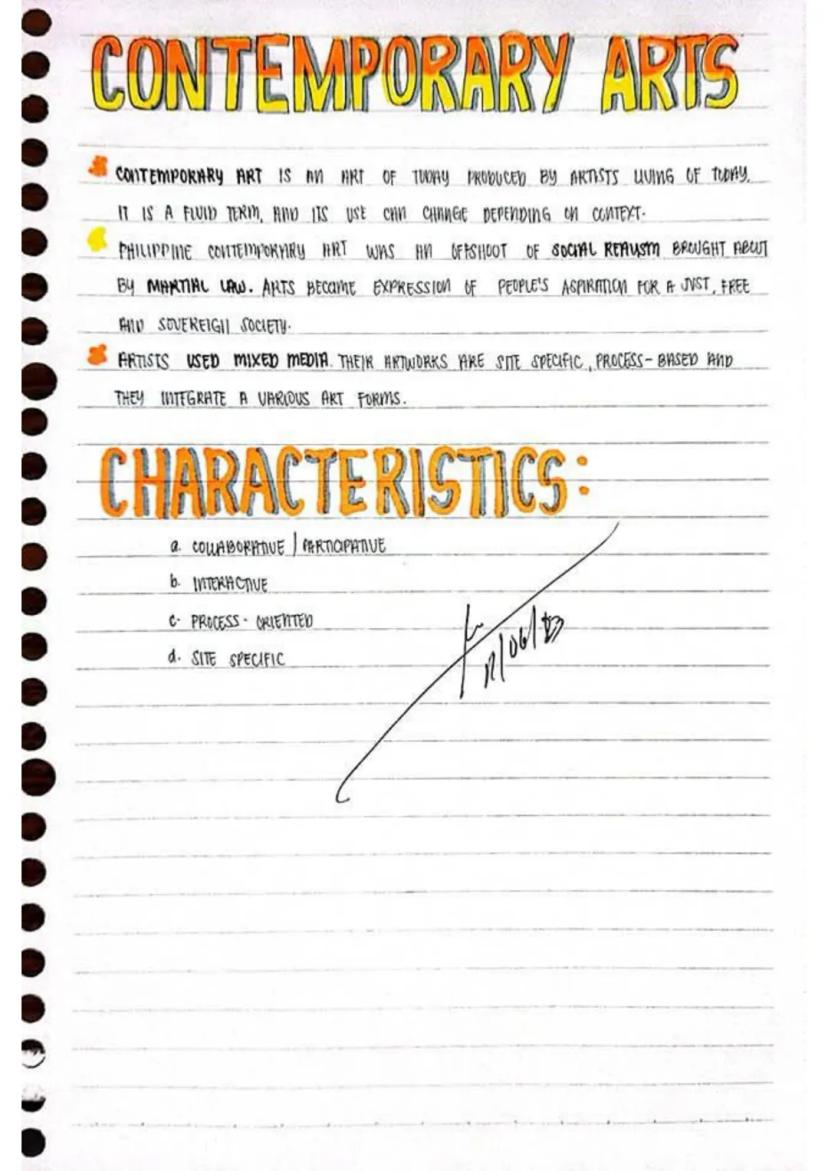 CONTEMPORARY ARTS
CONTEMPORARY ART IS AN ART OF TODAY PRODUCED BY ARTISTS LIVING OF TODAY.
IT IS A FLUID TERM, AND ITS USE CAN CHANGE DEPENDING ON CONTEXT.
PHILIPPINE CONTEMPORARY ART WAS AN OFFSHOOT OF SOCIAL REALISM BROUGHT ABOUT
BY MARTIAL LAW. ARTS BECAME EXPRESSION OF PEOPLE'S ASPIRATION FOR A JUST, FREE
AND SOVEREIGN SOCIETY.
ARTISTS USED MIXED MEDIA. THEIR ARTWORKS ARE SITE SPECIFIC, PROCESS-BASED AND
THEY INTEGRATE A VARIOUS ART FORMS.
CHARACTERISTICS:
a. COLLABORATIVE | PARTICIPATIVE
b. INTERACTIVE
c. PROCESS-ORIENTED
d. SITE SPECIFIC